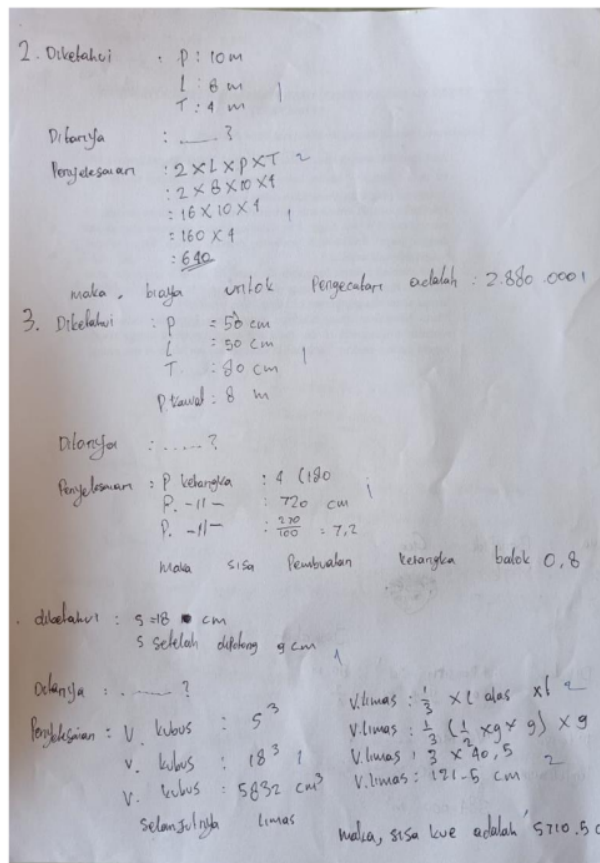 2. Diketahui : P : 10 m
l : 8 m
T : 4 m 1
Ditanya : ....... ?
Penyelesaian : 2 x L x P x T 2
: 2 x 8 x 10 x 4
: 16 x 10 x 4 1
: 160 x 4
: 640
maka, biaya untuk Pengecatan adalah : 2.880.000 1
3. Diketahui : P = 50 cm
l : 50 cm
T. : 80 cm 1
P. kawat : 8 m
Ditanya : ..... ?
Penyelesaian : P kerangka : 4 (180
P. -11- : 720 cm 1
P. -11- : /100 = 7,2
maka sisa Pembuatan kerangka balok 0,8
. diketahui : s = 18 cm
s setelah dipotong 9 cm 1
Ditanya : ....... ?
Penyelesaian : V. kubus : S³
V. kubus : 18³ 1
V. kubus : 5832 cm³
Selanjutnya limas
V. limas : 1/3 x L alas x t 2
V. limas : 1/3 (1/2 x 9 x 9) x 9
V. limas : 3 x 40,5
V. limas : 121-5 cm 2
maka, sisa kue adalah 5710.5 c